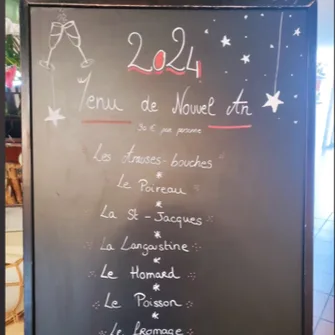 2024
Menu de Nouvel An
par personne
Les Amuses-bouches
Le Poireau
La St-Jacques
La Langoustine
Le Homard
Le Poisson
Le Fromage